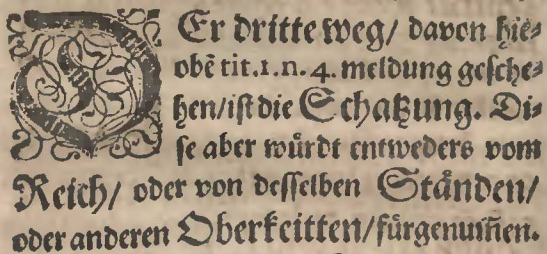 DEr dritte weg/ davon hie⸗
obē tit.1.n.4. meldung gesche⸗
hen/ist die Schatzung. Di⸗
se aber würdt entweders vom
Reich/ oder von desselben Ständen/
oder anderen Oberkeitten/fürgenum̃en.